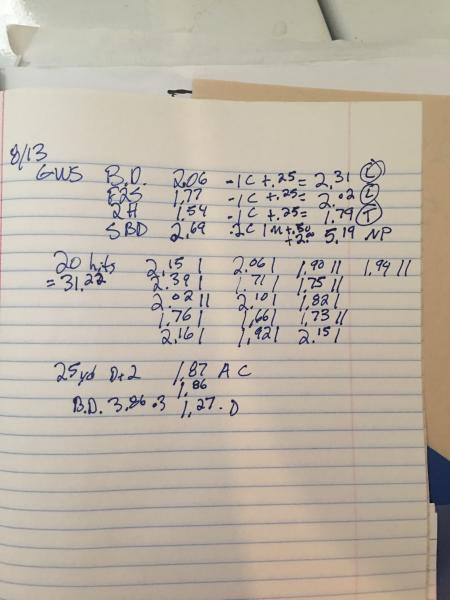 8/13
GWS B.D. 2.06 -1C +.25 = 2.31 C
E2S 1.77 -1C +.25 = 2.02 L
2H 1.54 -1C +.25 = 1.79 T
SBD 2.69 -2C 1M +.50 +2.00 5.19 NP
20 hits 2.15 | 2.06 | 1.90 || 1.94 ||
= 31.22 2.39 | 1.71 | 1.75 ||
2.02 || 2.10 | 1.82 |
1.76 | 1.66 | 1.73 ||
2.16 | 1.92 | 2.15 |
25 yd D+2 1.87 A C
1.86
B.D. 3.86 . 3 1.27 . D